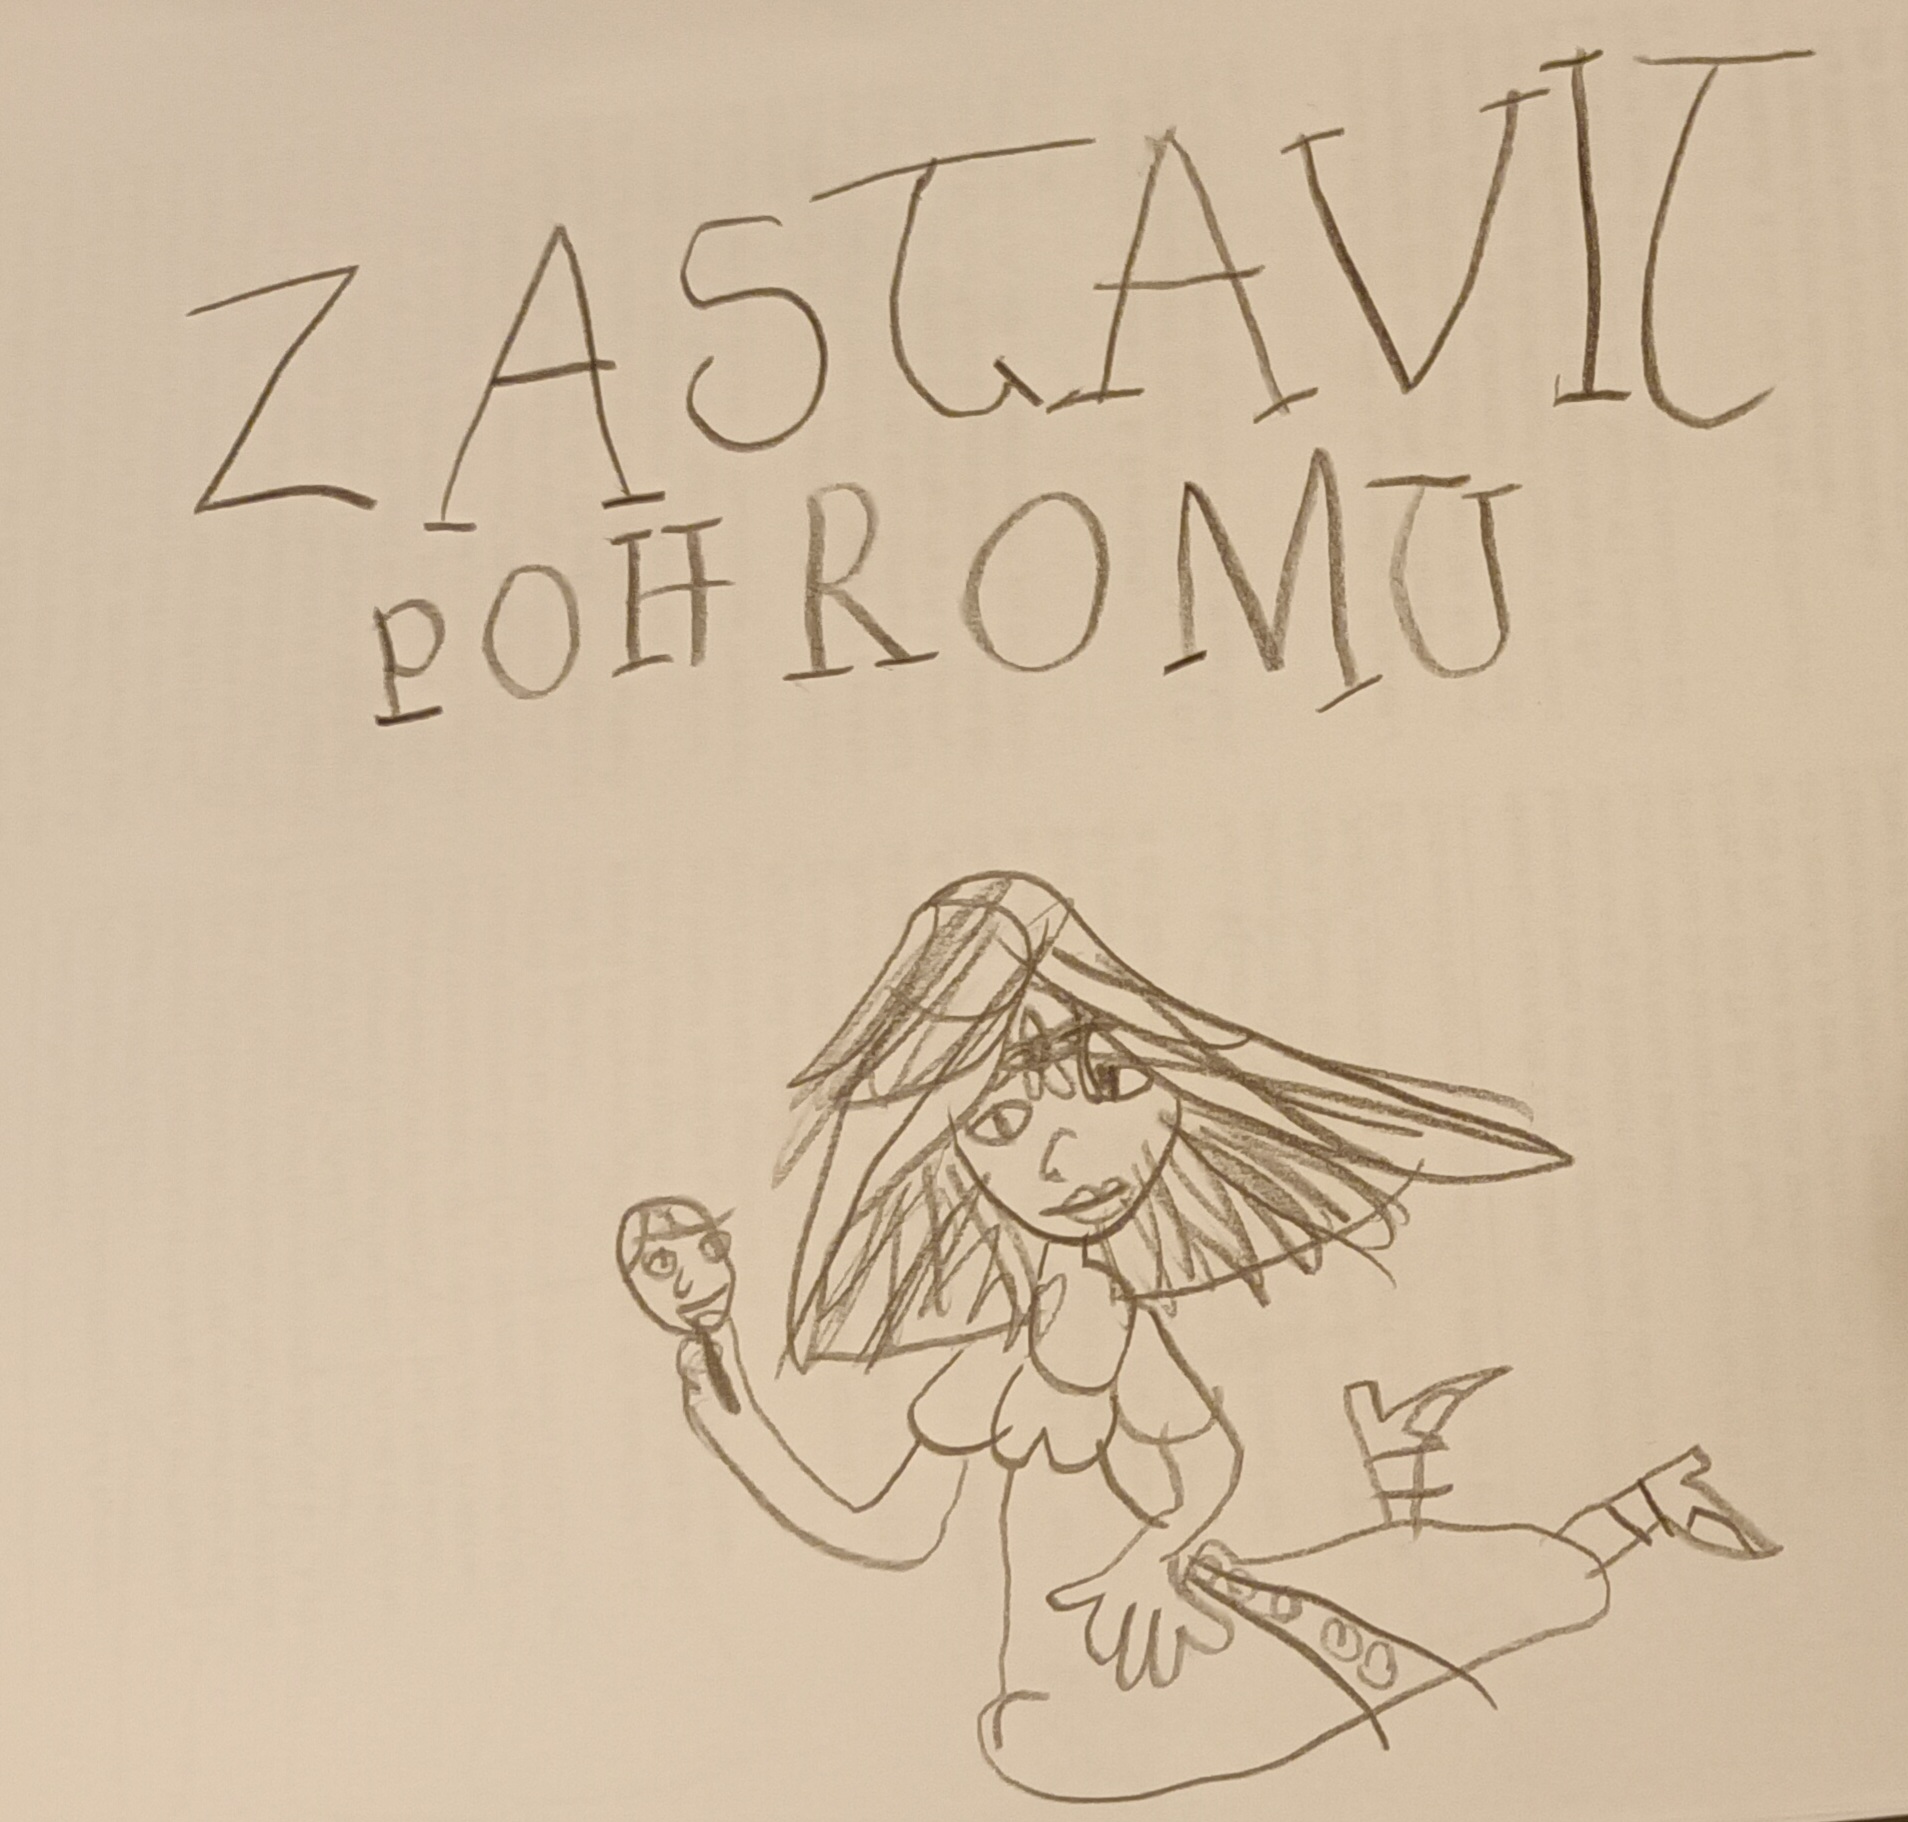 ZASTAVIT
POHROMU